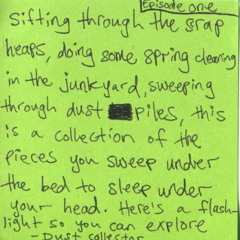 Episode one
Sifting through the scrap
heaps, doing some spring cleaning
in the junkyard, sweeping
through dust piles, this
is a collection of the
pieces you sweep under
the bed to sleep under
your head. Here's a flash-
light so you can explore
- Dust collector